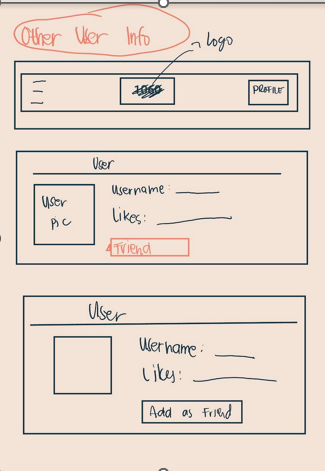 Other User Info
Logo
PROFILE
User
User
Pic
Username:
Likes:
Friend
User
Username:
Likes:
Add as Friend